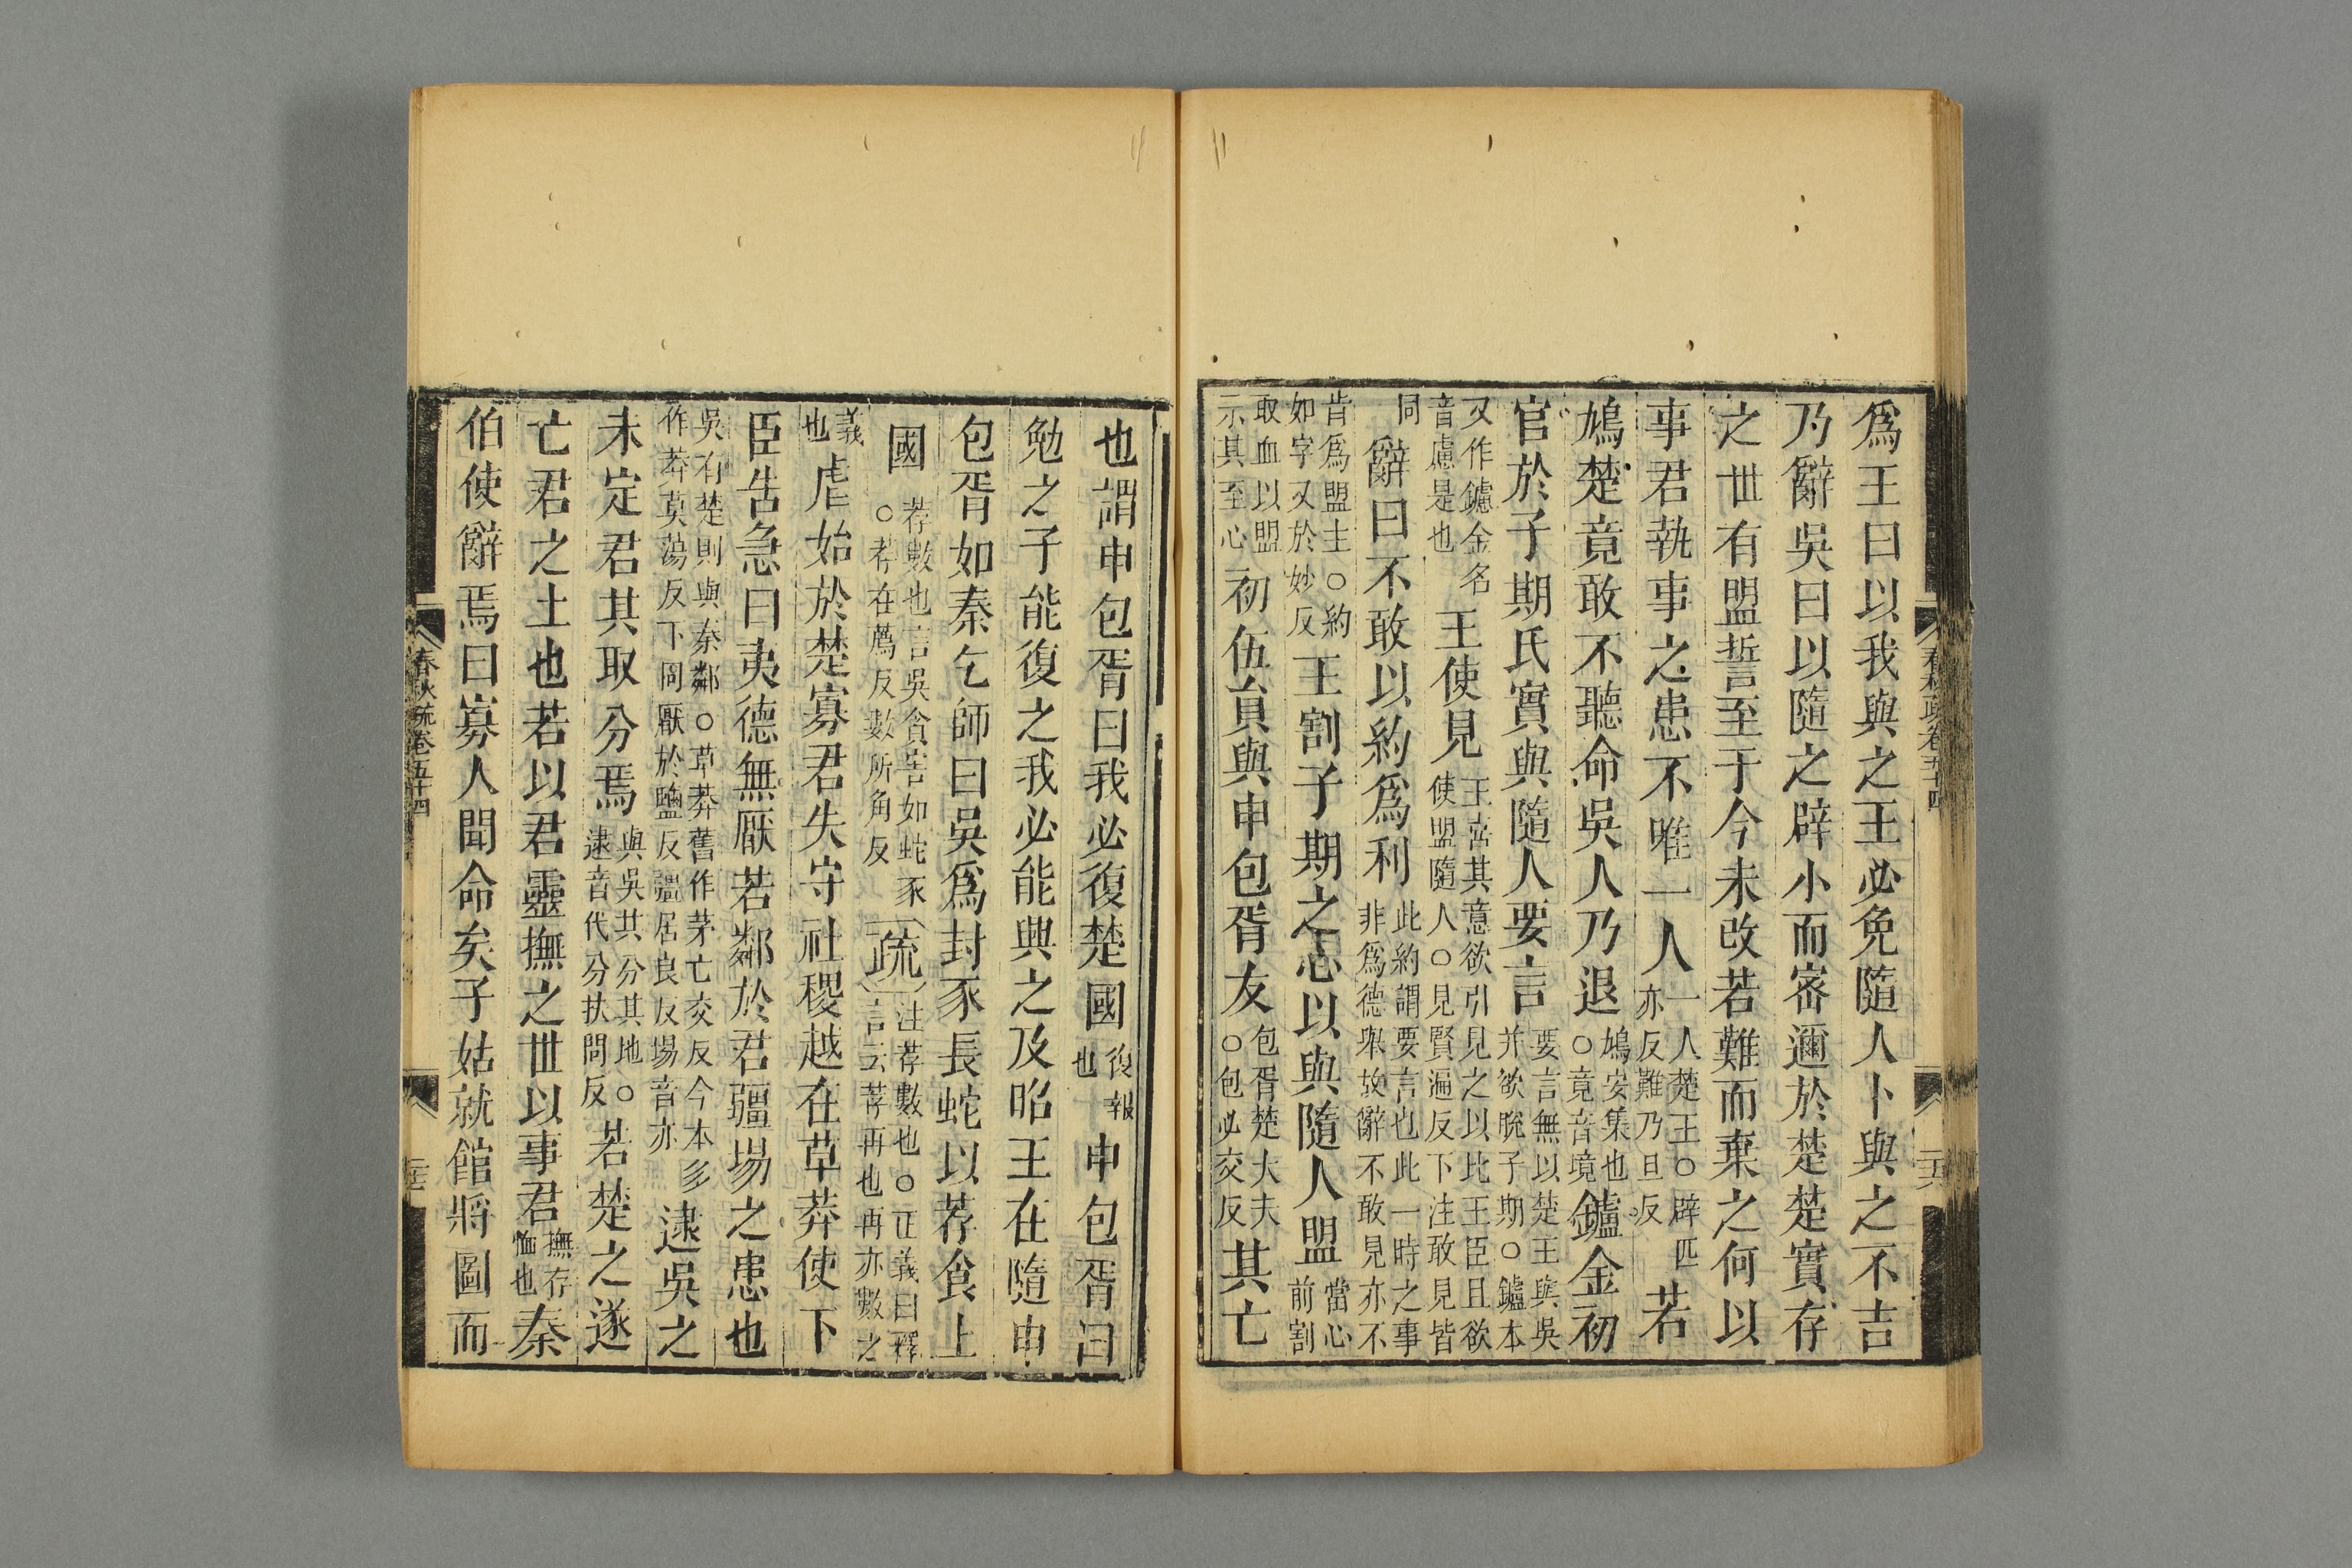 春秋疏卷五十四
爲王曰以我與之王必免隨人卜與之不吉
乃辭吳曰以隨之辟小而密邇於楚楚實存
之世有盟誓至于今未改若難而棄之何以
事君執事之患不唯一人一人楚王○辟匹亦反難乃旦反若
鳩楚竟敢不聽命吳人乃退鳩安集也○竟音境鑢金初
官於子期氏實與隨人要言要言無以楚王與吳并欲脫子期○鑢本
又作鑢金名音慮是也王使見王喜其意欲引見之以比王臣且欲使盟隨人○見賢遍反下注敢見皆
同辭曰不敢以約爲利此約謂要言也此一時之事非爲德舉故辭不敢見亦不
肯爲盟主○約如字又於妙反王割子期之心以與隨人盟當心前割
取血以盟示其至心初伍員與申包胥友包胥楚大夫○包必交反其亡
也謂申包胥曰我必復楚國復報也申包胥曰
勉之子能復之我必能興之及昭王在隨申
包胥如秦乞師曰吳爲封豕長蛇以荐食上
國荐數也言吳貪害如蛇豕○荐在薦反數所角反疏注荐數也○正義曰釋言云荐再也再亦數之
義也虐始於楚寡君失守社稷越在草莽使下
臣告急曰夷德無厭若鄰於君疆埸之患也
吳有楚則與秦鄰○草莽舊作茅亡交反今本多作莽莫蕩反下同厭於鹽反疆居良反埸音亦逮吳之
未定君其取分焉與吳共分其地○逮音代分扶問反若楚之遂
亡君之土也若以君靈撫之世以事君撫存恤也秦
伯使辭焉曰寡人聞命矣子姑就館將圖而
春秋疏卷五十四